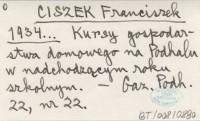 0
CISZEK Franciszek
1934... Kursy gospodar-
stwa domowego na Podhalu
w nadchodzącym roku
szkolnym. — Gaz. Podh.
22, nr 22.
BT/008/0880